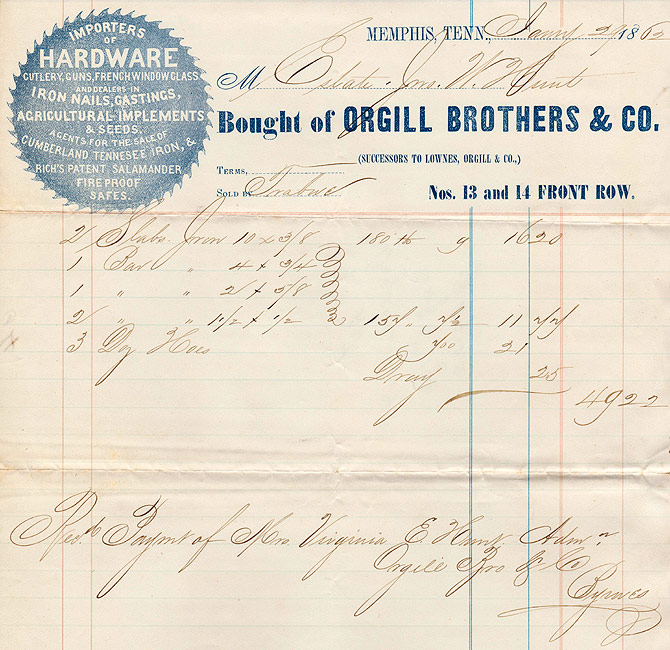 IMPORTERS
OF
HARDWARE
CUTLERY, GUNS, FRENCH WINDOW GLASS
AND DEALERS IN
IRON NAILS, CASTINGS,
AGRICULTURAL IMPLEMENTS
& SEEDS.
AGENTS FOR THE SALE OF
CUMBERLAND TENNESEE IRON, &
RICH'S PATENT SALAMANDER
FIRE PROOF
SAFES.
MEMPHIS, TENN., Jany 29 1862
M Estate Jno. W. Hunt
Bought of ORGILL BROTHERS & CO.
(SUCCESSORS TO LOWNES, ORGILL & CO.,)
TERMS,
SOLD BY Trabue
Nos. 13 and 14 FRONT ROW.
2 Slabs Iron 10 x 3/8 180 lb 9 16 20
1 Bar " 4 x 3/4
1 " " 2 x 3/8
2 " " 1 1/2 x 1/2 157 " 7 1/2 11 77
3 Doz Hoes 7 00 21
Dray 25
49 22
Recd Paymt of Mrs Virginia E. Hunt Admr
Orgill Bro & Co
Byrnes